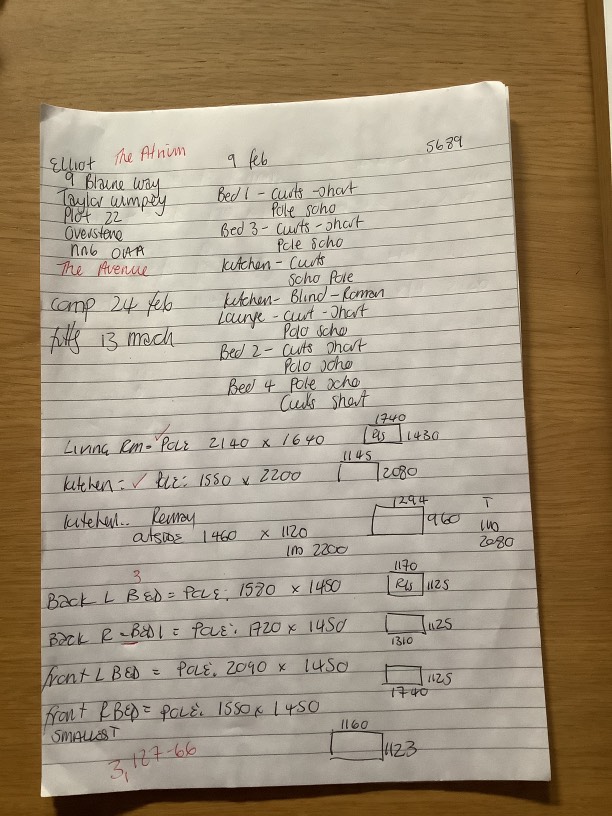 Elliot The Atrium 9 feb 5689
9 Blaine way
Taylor wimpey
Plot 22
Overstone
nn6 0AA
The Avenue
comp 24 feb
13 mach
Bed 1 - curts - short
Pole scho
Bed 3 - curts - short
Pole scho
kitchen - curts
scho Pole
kitchen - Blind - Roman
Lounge - curt - short
Polo scho
Bed 2 - curts short
Polo scho
Bed 4 Pole scho
Curts short
Living Rm = ✓ Pole 2140 x 1640 1740 1430
kitchen = ✓ Pole: 1550 x 2200 1145 2080
kitchen.. 1460 x 1120 1294 960 T
2200 2080
3
Back L BED = Pole: 1580 x 1450 1170 1125
Back R - BED 1 = Pole: 1720 x 1450 1310 1125
front L BED = Pole: 2090 x 1450 1740 1125
front R BED = Pole: 1550 x 1450
SMALLEST 1160 1123
3,127-66